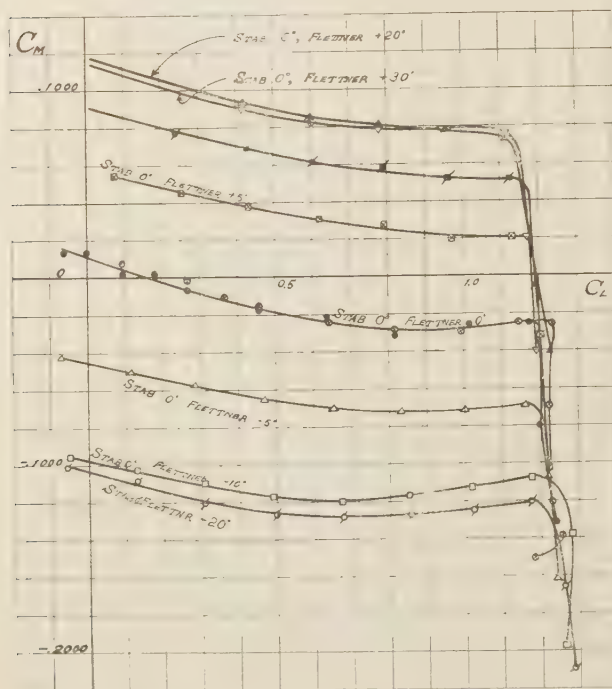 C_M
STAB 0°, FLETTNER +20°
STAB 0°, FLETTNER +30°
.1000
STAB 0° FLETTNER +5°
0
0.5
1.0
C_L
STAB 0° FLETTNER 0°
STAB 0° FLETTNER -5°
-.1000
STAB 0° FLETTNER -10°
FLETTNR -20°
-.2000